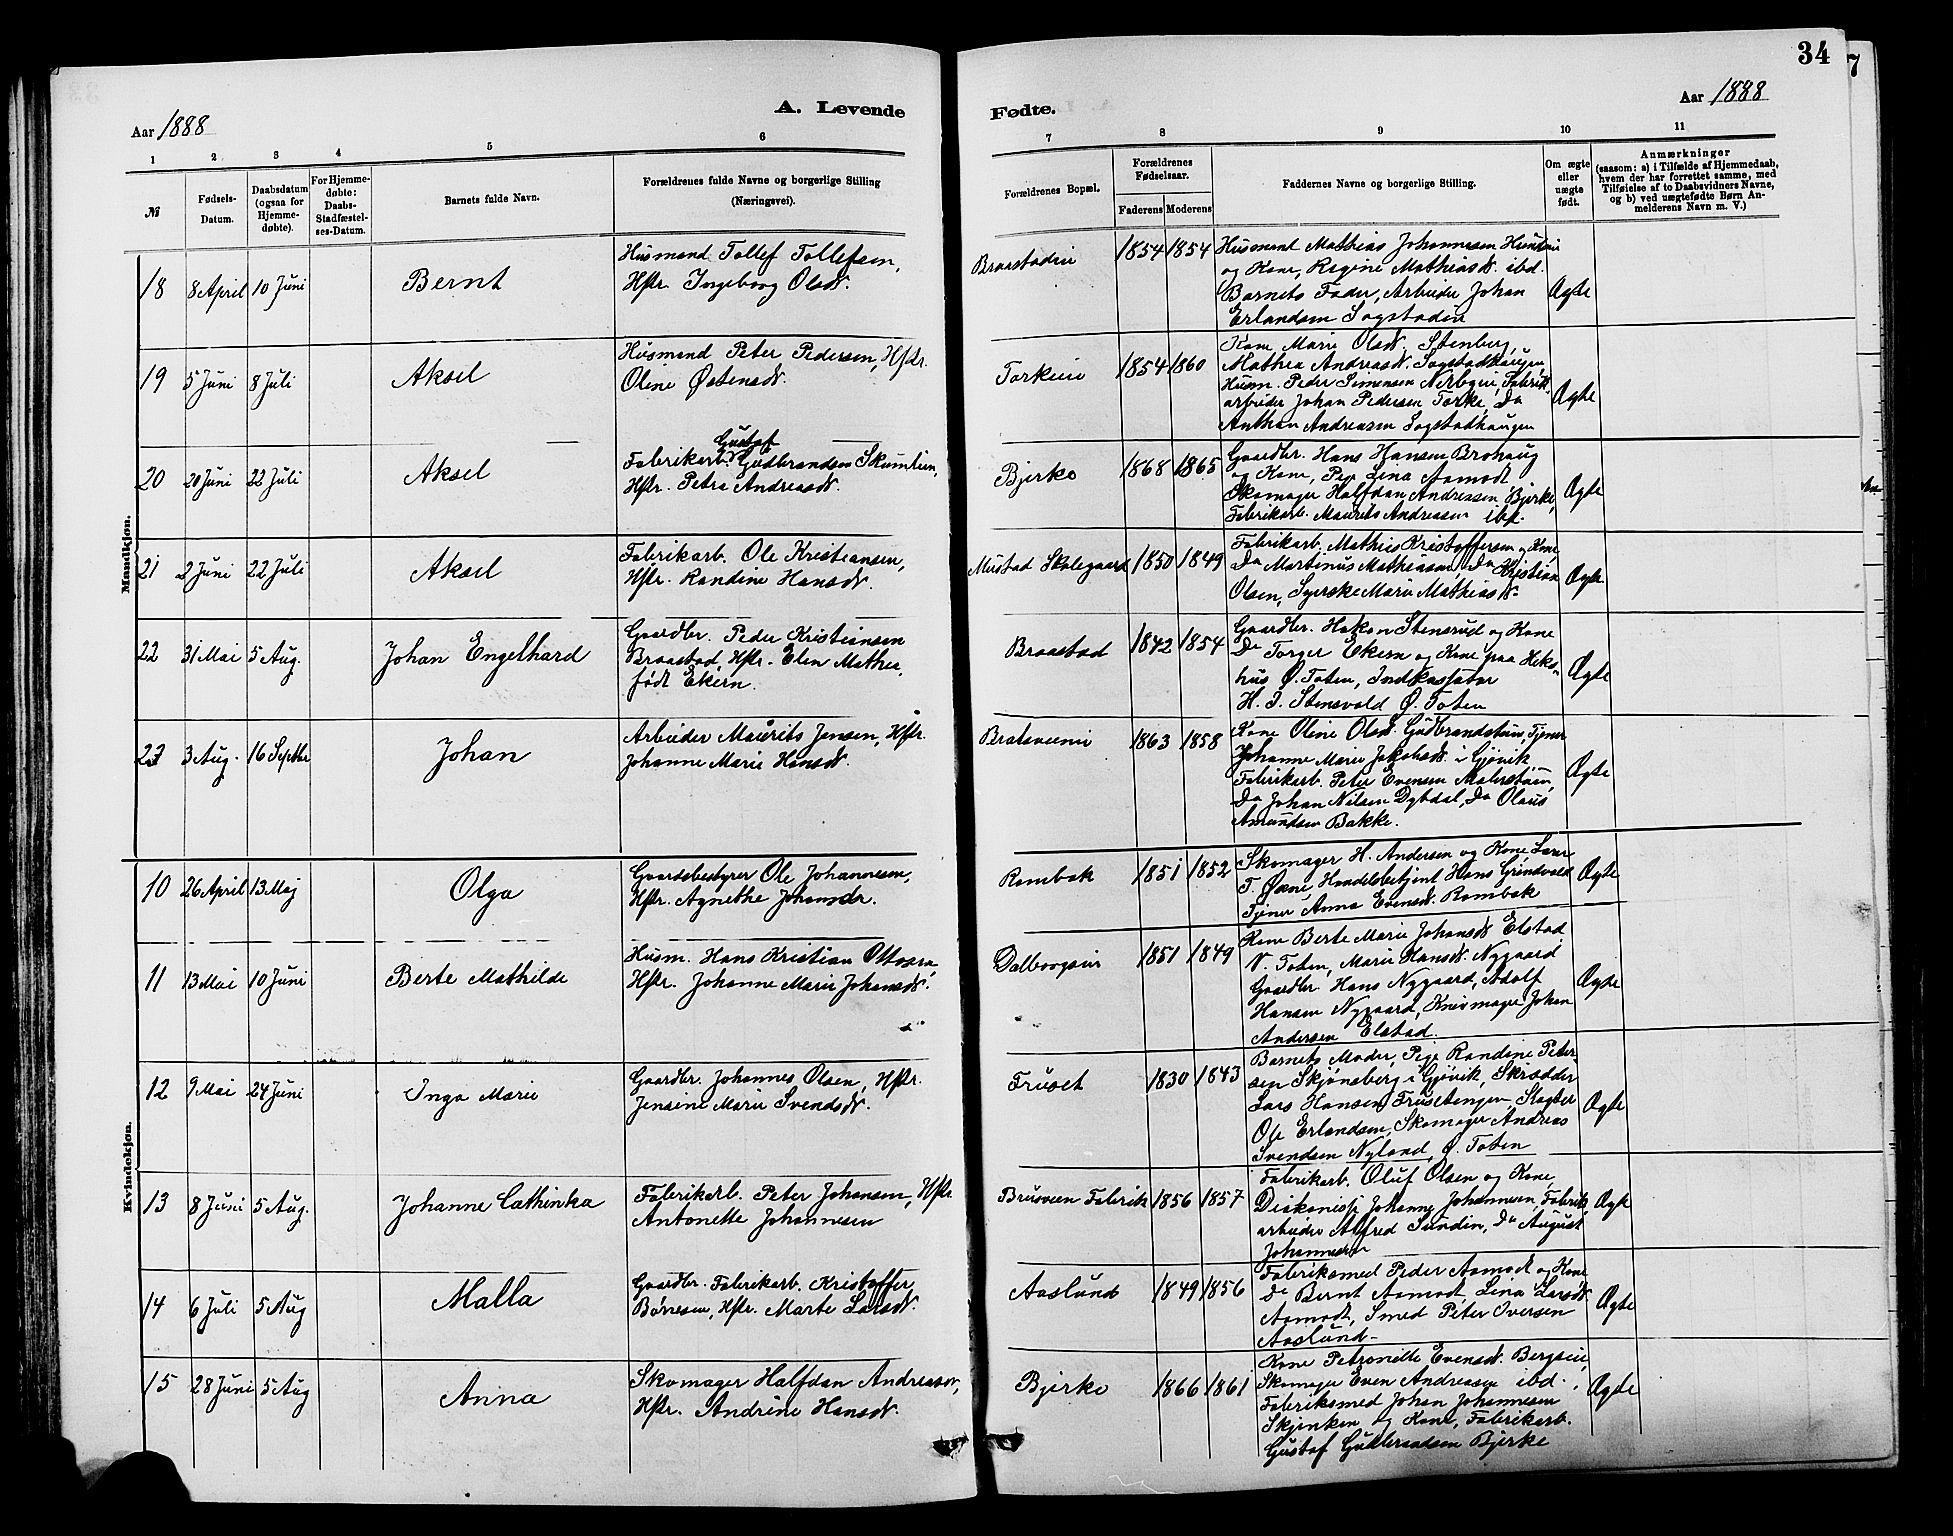 34
7
Aar 1888
A. Levende
Fødte.
Aar 1888
1 2 3 4 5 6
7 8 9 10 11
№
Fødsels-
Datum.
Daabsdatum
(ogsaa for
Hjemme-
døbte).
For Hjemme-
døbte:
Daabs-
Stadfæstel-
ses-Datum.
Barnets fulde Navn.
Forældrenes fulde Navne og borgerlige Stilling
(Næringsvei).
Forældrenes Bopæl.
Forældrenes
Fødselsaar.
Faderens Moderens
Faddernes Navne og borgerlige Stilling.
Om ægte
eller
uægte
født.
Anmærkninger
(saasom: a) i Tilfælde af Hjemmedaab,
hvem der har forrettet samme, med
Tilføielse af to Daabsvidners Navne,
og b) ved uægtefødte Børn An-
melderens Navn m. V.)
Mandkjøn.
18 8 April 10 Juni Bernt
Husmand Tollef Tollefsen,
Hstr. Ingeborg Olsdr.
Braastadeie 1854 1854
Husmand Mathias Johannesen
og Kone, Regine Mathiasdr. ibd.
Barnets Fader, Arbeider Johan
Erlandsen Sogstadeie
Ægte
19 5 Juni 8 Juli Aksel
Husmand Peter Pedersen, Hstr.
Oline Østensdr.
Torkeeie 1854 1860
Kone Marie Olsdr. Stenberg,
Mathea Andreasdr. Sogstadhaugen,
Husm. Peder Simensen Nerbyeie, Fabrik-
arbeider Johan Pedersen Torke, Do
Anthon Andreassen Sogstadhaugen
Ægte
20 20 Juni 22 Juli Aksel
Gustaf
Fabrikarb. Gudbrandsen Skumlien,
Hstr. Petra Andreasdr.
Bjerke 1868 1865
Gaardbr. Hans Hansen Brohaug
og Kone, Pige Lina Aamodt
Skomager Halfdan Andreassen Bjerke,
Fabrikarb. Maurits Andreassen ibd.
Ægte
21 2 Juni 22 Juli Aksel
Fabrikarb. Ole Kristiansen,
Hstr. Randine Hansdr.
Mustad Skolegaard 1850 1849
Fabrikarb. Mathias Kristoffersen og Kone,
Do Martinus Mathiassen, Do Kristian
Olsen, Syerske Marie Mathiasdr.
Ægte
22 31 Mai 5 Aug. Johan Engelhard
Gaardbr. Peder Kristiansen
Braastad, Hstr. Elen Mathea,
født Ekern.
Braastad 1842 1854
Gaardbr. Hakon Stensrud og Kone
Do Torger Ekern og Kone paa Heks-
hus Ø. Toten, Indkassator
H. J. Stensvold Ø. Toten
Ægte
23 3 Aug. 16 Septbr Johan
Arbeider Maurits Jensen, Hstr.
Johanne Marie Hansdr.
Bratsveenie 1863 1858
Kone Oline Olsdr. Gudbrandstuen, Tjener
Johanne Marie Jakobsdr. i Gjøvik,
Fabrikarb. Peter Evensen Malerstuen,
Do Johan Nilsen Dybdal, Do Olaus
Amundsen Bakke.
Ægte
Kvindekjøn.
10 26 April 13 Maj Olga
Gaardsbestyrer Ole Johannesen,
Hstr. Agnethe Johansdr.
Rambæk 1851 1852
Skomager H. Andersen og Kone, Lærer
T. Øxne, Handelsbetjent Hans Grindvold
Tjener Anna Evensdr. Rambæk
Ægte
11 13 Mai 10 Juni Berte Mathilde
Husm. Hans Kristian Ottosen,
Hstr. Johanne Marie Johansdr.
Dalborgseie 1851 1849
Kone Berte Marie Johansdr. Elstad
V. Toten, Marie Hansdr. Nygaard
Gaardbr. Hans Nygaard, Adolf
Hansen Nygaard, Knivmager Johan
Andersen Elstad.
Ægte
12 9 Mai 24 Juni Inga Marie
Gaardbr. Johannes Olsen, Hstr.
Jensine Marie Svendsdr.
Fruset 1830 1843
Barnets Moder, Pige Randine Peter-
sen Skjønsberg i Gjøvik, Skrædder
Lars Hansen Frusetengen, Slagter
Ole Erlandsen, Skomager Andreas
Svendsen Nyland, Ø. Toten
Ægte
13 8 Juni 5 Aug. Johanne Cathinka
Fabrikarb. Peter Johansen, Hstr.
Antonette Johannesen
Brusveen Fabrik 1856 1857
Fabrikarb. Oluf Olsen og Kone,
Diakonisse Johanne Johannesen, Fabrik-
arbeider Alfred Sundin, Do August
Johannesen
Ægte
14 6 Juli 5 Aug Malla
Gaardbr. Fabrikarb. Kristoffer
Børresen, Hstr. Marte Larsdr.
Aaslund 1849 1856
Fabriksmed Peder Aamodt og Kone
Do Bernt Aamodt, Lina Larsdr.
Aamodt, Smed Peter Iversen
Aaslund.
Ægte
15 28 Juni 5 Aug Anna
Skomager Halfdan Andreassen,
Hstr. Andrine Hansdr.
Bjerke 1866 1861
Kone Petronille Evensdr. Bergseie,
Skomager Even Andreassen ibd.,
Fabriksmed Johan Johannesen
Skjenken og Kone, Fabrikarb.
Gustaf Gudbrandsen Bjerke
Ægte